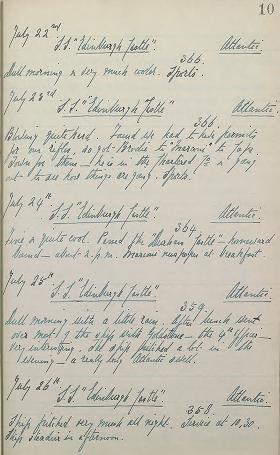 10
July 22nd
S.S. "Edinburgh Castle" Atlantic.
366.
Dull morning & very much cooler. Sports.
July 23rd
S.S. "Edinburgh Castle" Atlantic.
366.
Blowing quite hard. Found we had to have permits
for our rifles, so got Brodie to "Marconi" to Cape
Town for them – he is in the Transport Co & going
out to see how things are going. Sports.
July 24th
S.S. "Edinburgh Castle" Atlantic.
364.
Fine & quite cool. Passed the "Durham Castle" – homeward
bound – about 2.p.m. Marconi newspaper at breakfast.
July 25th
S.S. "Edinburgh Castle" Atlantic.
359.
Dull morning with a little rain. After lunch went
over most of the ship with Johnstone – the 4th Officer –
very interesting. The ship pitched a lot in the
evening – a really big Atlantic swell.
July 26th
S.S. "Edinburgh Castle" Atlantic.
358.
Ship pitched very much all night. Service at 10.30.
Ship steadier in afternoon.